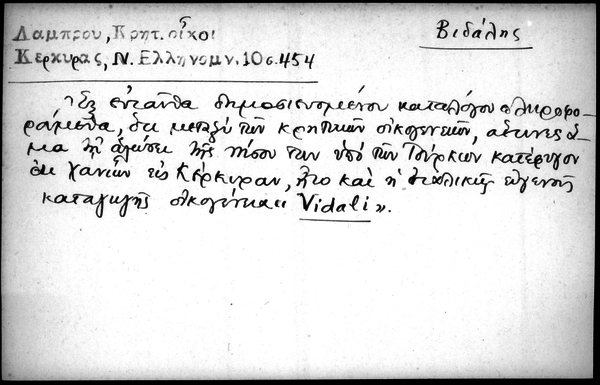 Βιδάλης
Λαμπρου, Κρητ. οἶκοι
Κερκυρας, Ν. Ελληνομν. 10 σ. 454
Ἐξ ἐνταῦθα δημοσιευομένου καταλόγου πληροφο-
ρούμεθα, ὅτι μεταξύ τῶν κρητικῶν οἰκογενειῶν, αἵτινες ἅ-
μα τῇ ἁλώσει τῆς νήσου των ὑπό τῶν Τούρκων κατέφυγον
ἐκ Χανίων εἰς Κέρκυραν, ἦτο καί ἡ ἰταλικῆς εὐγενοῦς
καταγωγῆς οἰκογένεια « Vidali ».